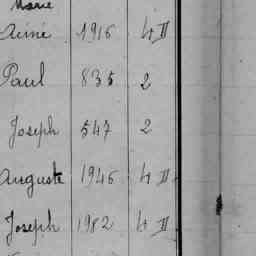 Marie
Aimé 1916 4 II
Paul 835 2
Joseph 547 2
Auguste 1946 4 II
Joseph 1982 4 II